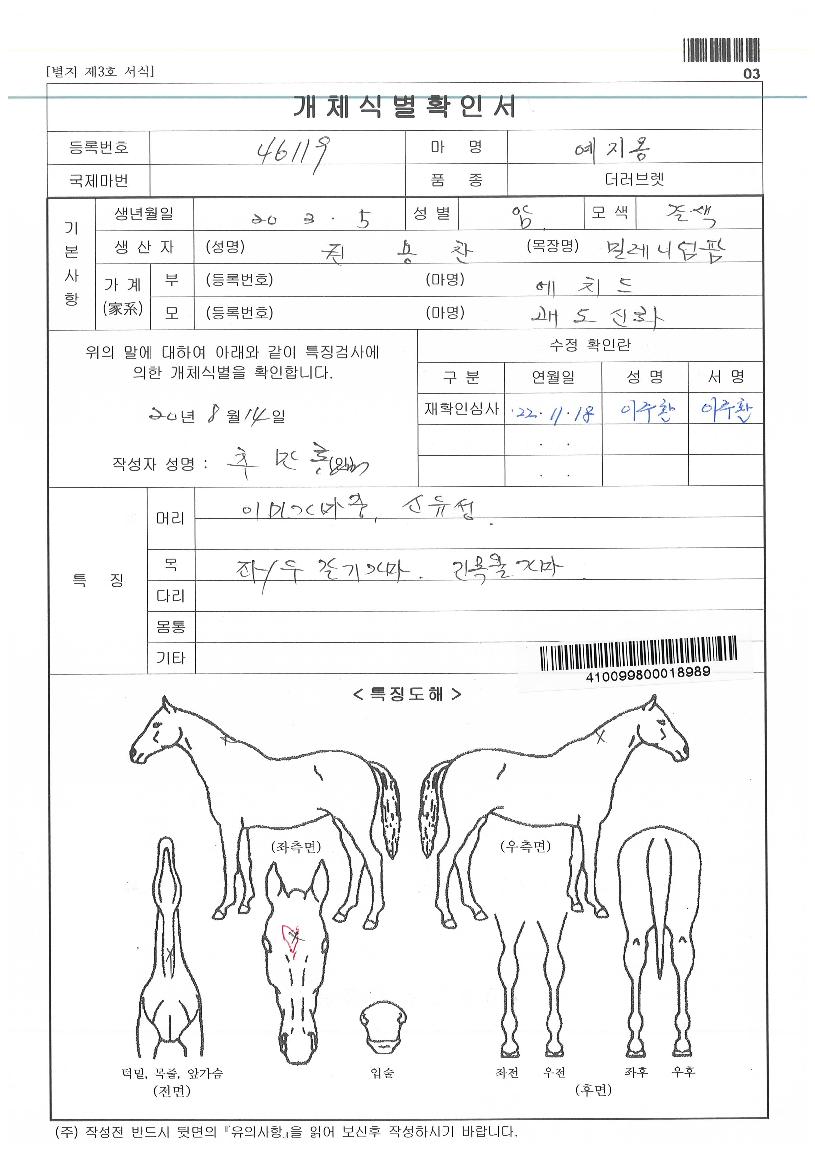 03
[별지 제3호 서식]
개체식별확인서
등록번호 46119 마 명 예지용
국제마번 품 종 더러브렛
기본사항
생년월일 20 3 . 5 성 별 암 모 색 갈색
생 산 자 (성명) 용 찬 (목장명) 밀레니엄팜
가 계 (家系) 부 (등록번호) (마명) 에치드
모 (등록번호) (마명) 쾌도신화
위의 말에 대하여 아래와 같이 특징검사에
의한 개체식별을 확인합니다.
20년 8월 14일
작성자 성명 :
수정 확인란
구 분 연월일 성 명 서 명
재확인심사 '22. 11. 18 이주환 이주환
. .
. .
특 징
머리
목 좌/우
다리
몸통
기타
410099800018989
< 특징도해 >
(좌측면) (우측면)
턱밑, 목줄, 앞가슴 입술 좌전 우전 좌후 우후
(전면) (후면)
(주) 작성전 반드시 뒷면의 『유의사항』을 읽어 보신후 작성하시기 바랍니다.